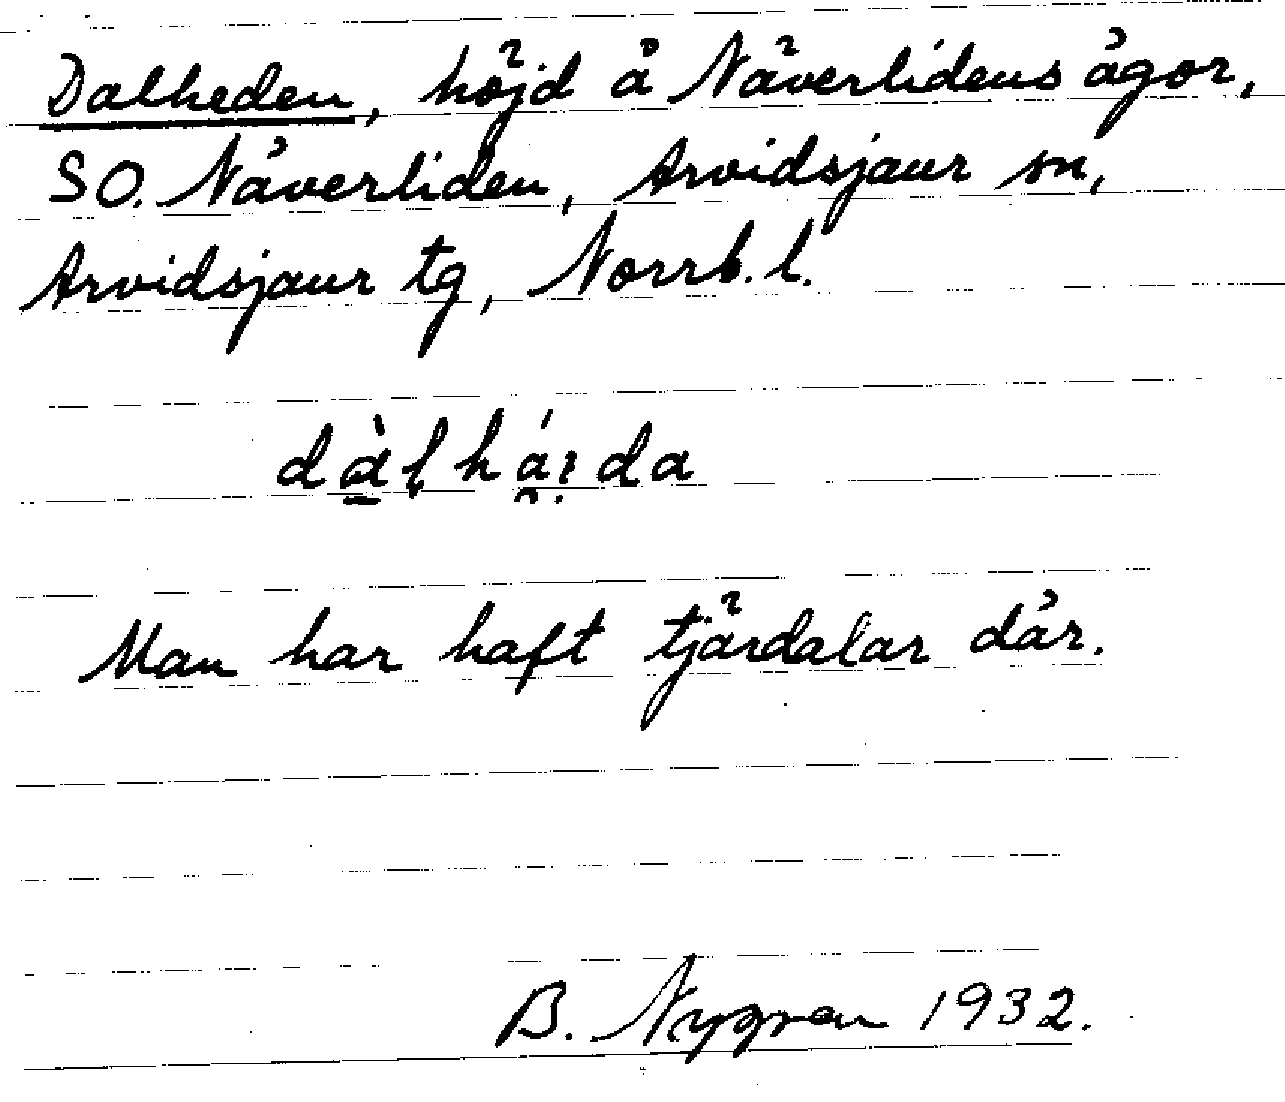 Dalheden, höjd å Näverlidens ägor,
SO. Näverliden, Arvidsjaur sn,
Arvidsjaur tg, Norrb. l.
Man har haft tjärdalar där.
B. Nygren 1932.